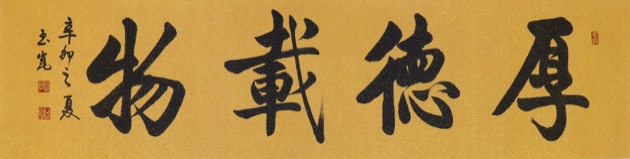 厚德載物
辛卯之夏
玉嵬